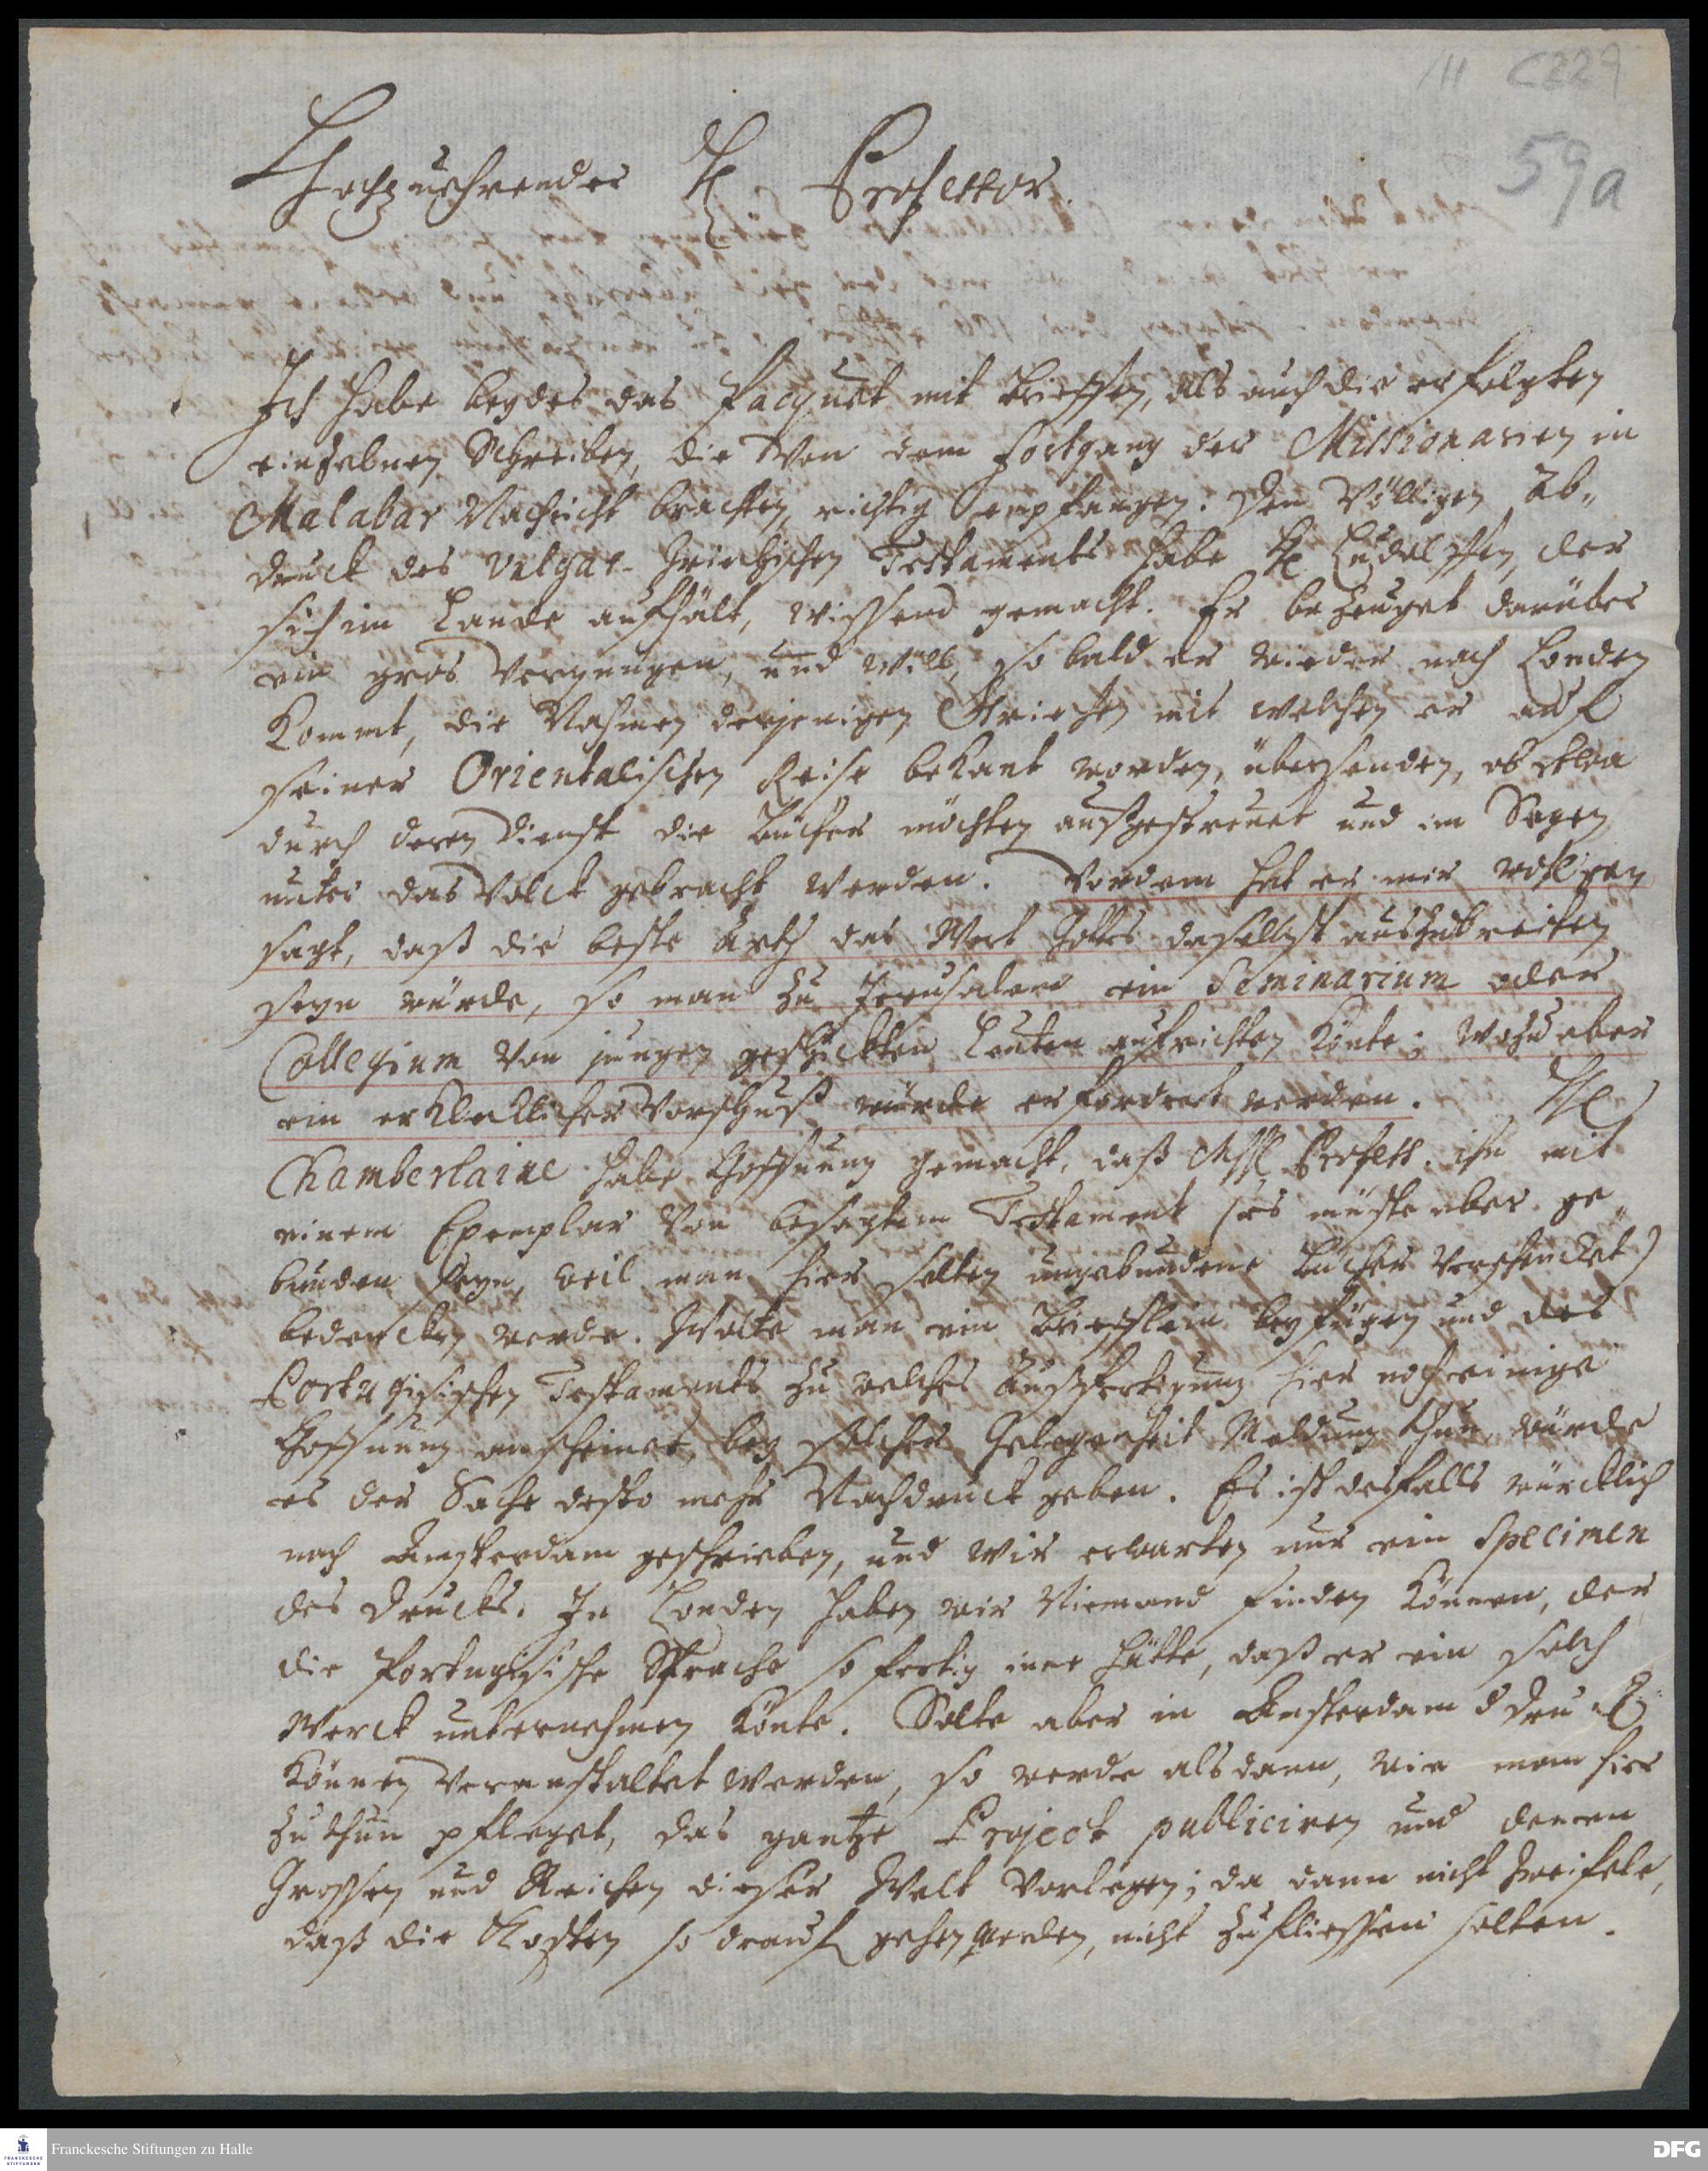 III C229
59a
Hochzuehrender H. Professor.
Ich habe beydes das Pacquet mit Brieffen, als auch die erfolgten
einzelnen Schreiben, die von dem fortgang der Missionarien in
Malabar Nachricht brachten, richtig empfangen. Den völligen Ab„
druck des vulgar-Griechischen Testaments habe H. Ludolffen, der
sich im Lande aufhält, wissend gemacht. Er bezeuget darüber
ein gros Vergnügen, und will, so bald er wieder nach Londen
kommt, die Nahmen derjenigen Griechen mit welchen er auf
seiner Orientalischen Reise bekant worden, übersenden, ob etwa
durch deren Dienst die Bücher möchten ausgestreuet und im Segen
unter das Volck gebracht werden. Vordem hat er mir
sagt, daß die beste Arth das Wort Gottes daselbst auszubreiten
seyn würde, so man zu Jerusalem ein Seminarium oder
Collegium von jungen geschickten Leuten aufrichten könte; wozu aber
ein erklecklicher Vorschuß würde erfordert werden. H.
Chamberlaine habe Hoffnung gemacht, daß MhH. Profess. ihn mit
einem Exemplar von besagtem Testament (es müste aber ge„
bunden seyn, weil man hier selten ungebundene Bücher verschencket)
bedencken werde. Wolte man ein Briefflein beyfügen und des
Portugisischen Testaments zu welches Ausfertigung hier noch einige
Hoffnung anscheinet, bey solcher Gelegenheit Meldung thun, würde
es der Sache desto mehr Nachdruck geben. Es ist desfalls würcklich
nach Amsterdam geschrieben, und wir erwarten nur ein Specimen
des Drucks. In Londen haben wir Niemand finden können, der
die Portugisische Sprache so fertig inne hätte, daß er ein solch
Werck unternehmen könte. Solte aber in Amsterdam d Druck
können veranstaltet werden, so werde alsdann, wie man hier
zu thun pfleget, das gantze Project publiciren und denen
Grossen und Reichen dieser Welt vorlegen; da dann nicht zweifele,
daß die Kosten so drauf gehen werden, nicht zufliessen solten.
Franckesche Stiftungen zu Halle
FRANCKESCHE
STIFTUNGEN
DFG